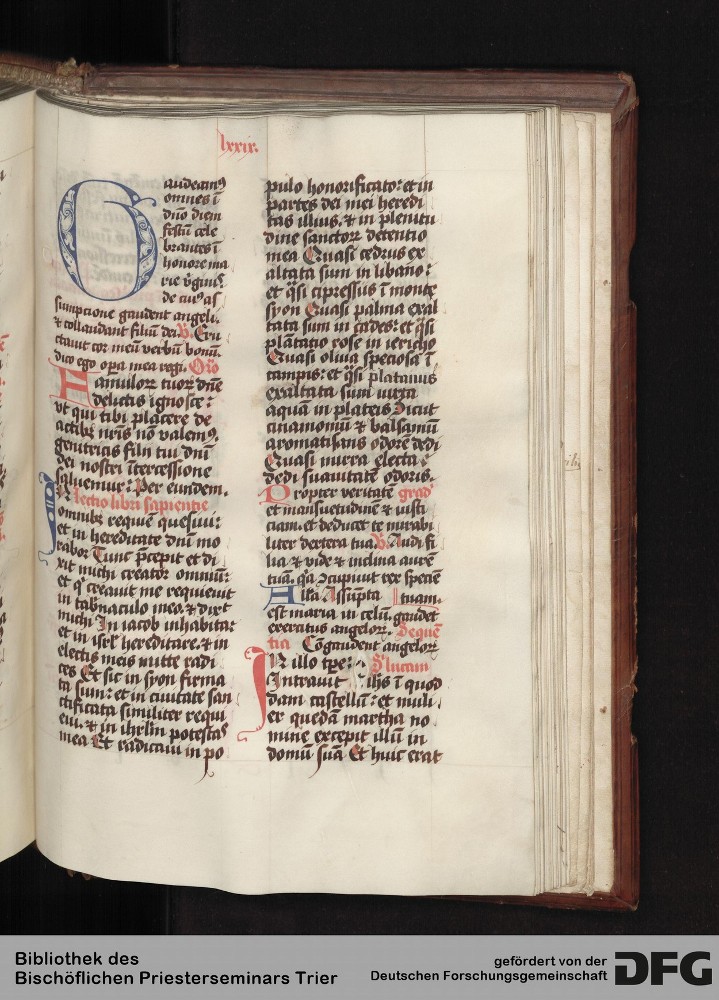 lxxix.
Gaudeamꝰ
omnes ī
dn̄o diem
festū cele
brantes ī
honore ma
rie v̄gīnꝭ
de cuiꝰ as
sumpcione gaudent angeli.
⁊ collaudant filiū dei. V̓. Eru
ctauit cor meū verbū bonū.
dico ego oꝑa mea regi. Oro
Famulorꝝ tuorꝝ dn̄e
delictis ignosce:
vt qui tibi placere de
actibꝫ nr̄is nō valemꝰ.
genitricis filii tui dn̄i
dei nostri ītercessione
saluemur: Per eundem.
Lectio libri sapientie
In omnibꝫ requiē quesiui:
et in hereditate dn̄i mo
rabor Tunc p̄cepit et di
xit michi creator omniū:
et qͥ creauit me requieuit
in tab̓naculo meo. ⁊ dixit
michi In iacob inhabita:
et in isrl̄ hereditare. ⁊ in
electis meis mitte radi
ces Et sic in syon firma
ta sum: et in ciuitate san
ctificata similiter requi
eui. ⁊ in ihrl̄m potestas
mea Et radicaui in po
pulo honorificato: et in
partes dei mei heredi
tas illius. ⁊ in plenitu
dine sanctorꝝ detentio
mea Quasi cedrus ex
altata sum in libano:
et q̄si cipressus ī monte
syon Quasi palma exal
tata sum in cades: et q̄si
plātatio rose in iericho
Quasi oliua speciosa ī
campis: et q̄si platanus
exaltata sum iuxta
aquā in plateis Sicut
cinamomū ⁊ balsamū
aromatisans odorē dedi
Quasi mirra electa:
dedi suauitatē odoris.
Propter veritatē grad̓
et mansuetudinē ⁊ iusti
ciam. et deducet te mirabi
liter dextera tua. V̓. Audi fi
lia ⁊ vide ⁊ inclina aurē
tuā. qͥa ↄcupiuit rex speciē
Alla Assūpta tuam.
est maria in celū. gaudet
exercitus angelorꝝ. Seque
tia Cōgaudent angelorꝝ
In illo tꝑe: S̓ lucam
Intrauit ihs ī quod
dam castellū: et muli
er quedā martha no
mine excepit illū in
domū suā Et huic erat
Bibliothek des
Bischöflichen Priesterseminars Trier
gefördert von der
Deutschen Forschungsgemeinschaft
DFG